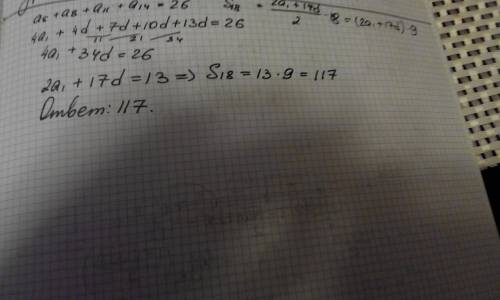 a₆ + a₈ + a₁₁ + a₁₄ = 26 S₁₈ = (2a₁ + 17d)/2 · 18 = (2a₁ + 17d) · 9
4a₁ + 4d + 7d + 10d + 13d = 26
11 21 34
4a₁ + 34d = 26
2a₁ + 17d = 13 => S₁₈ = 13 · 9 = 117
Ответ: 117.